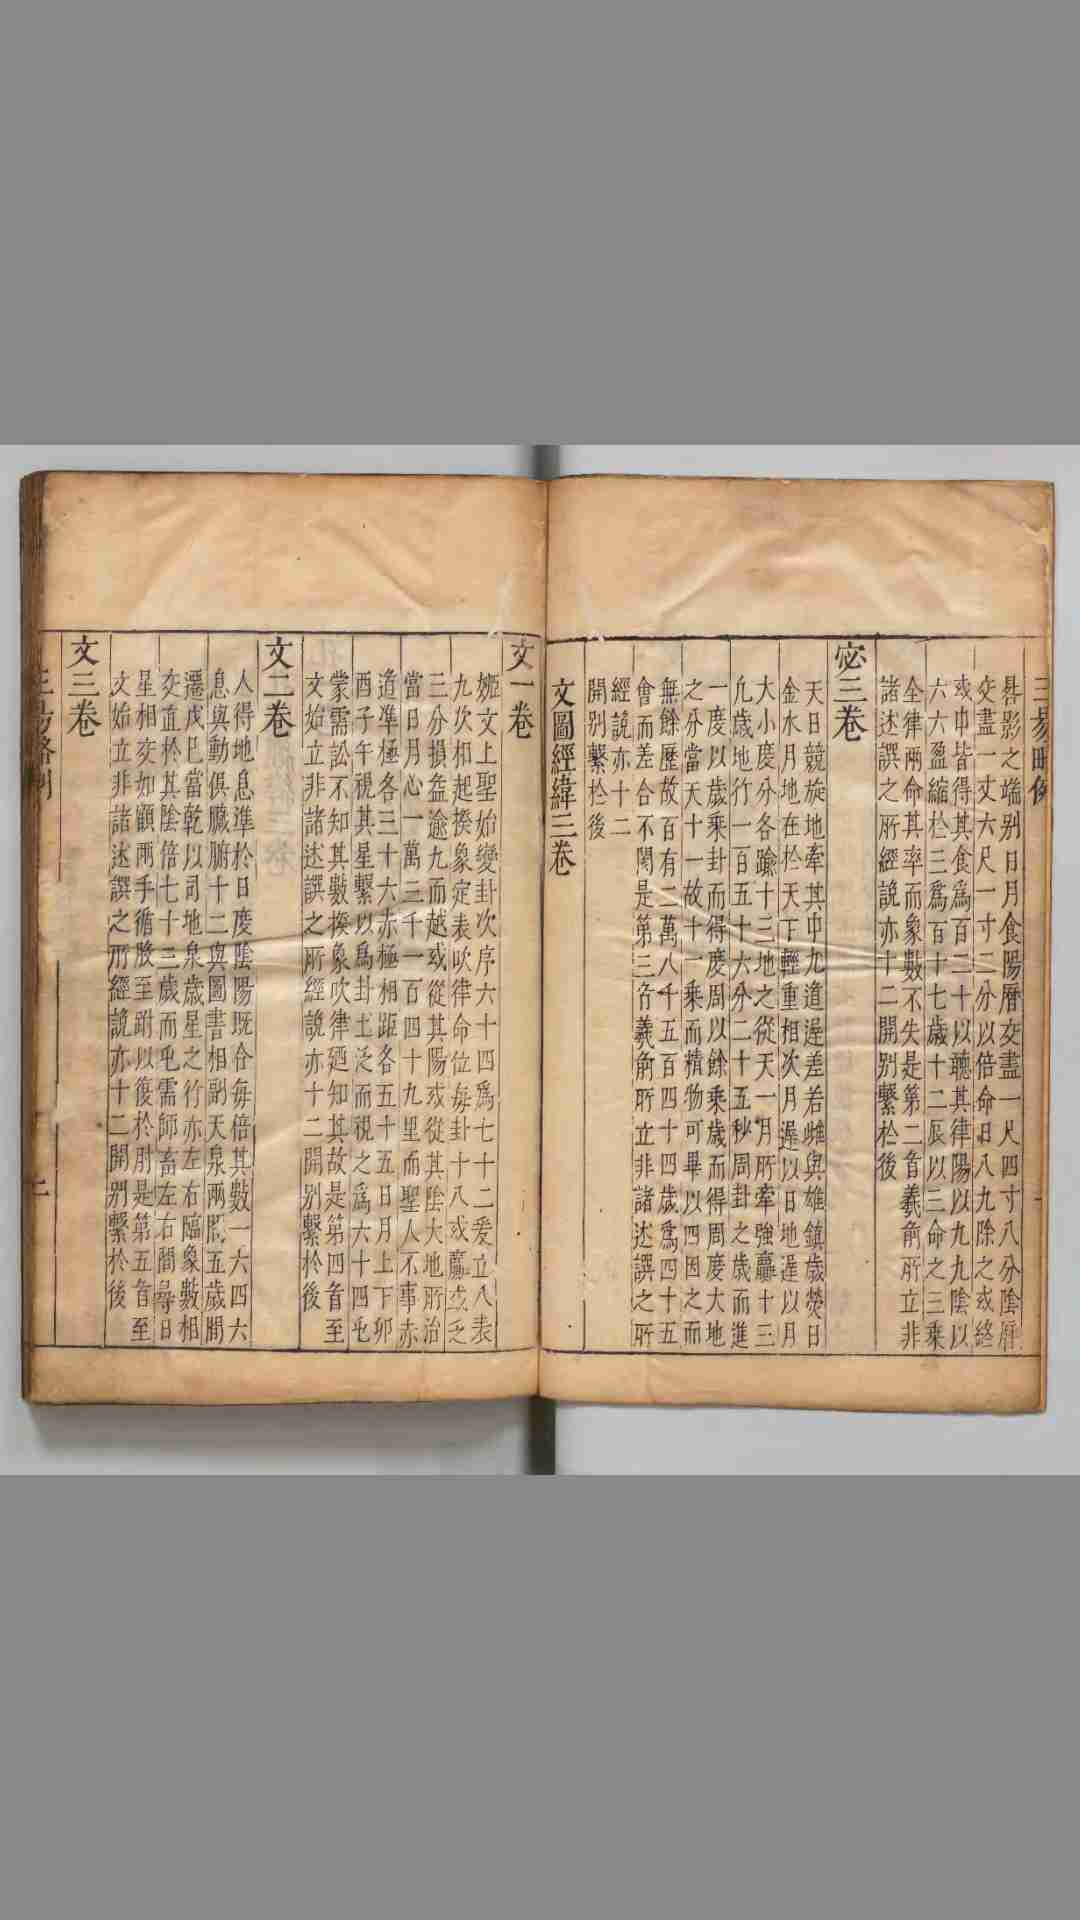 三易
晷影之端别日月食陽曆交盡一尺四寸八分陰曆
交盡一丈六尺一寸二分以倍命日八九除之或終
或中皆得其食爲百二十以聽其律陽以九九陰以
六六盈縮於三爲百十七歲十二辰以三命之三乘
全律兩命其率而象數不失是第二音羲前所立非
諸述譔之所經說亦十二開别繫於後
宓三卷
天日競旋地牽其中九道遲差若雌與雄鎮歲熒日
金水月地在於天下輕重相次月遲以日地遲以月
大小慶分各踰十三地之從天月所牽強羸十三
九歲地行一百五十六分二十五秒周卦之歲而進
一度以歲乘卦而得慶周以餘乘歲而得周度大地
之分當天十一故十一乘而精物可畢以四因之而
無餘歷故百有二萬八千五百四十四歲爲四十五
會而差合不閏是第三音羲前所立非諸述譔之所
經說亦十二
開别繫於後
文圖經緯三卷
文一卷
姬文上聖始變卦次序六十四爲七十二爰立八表
九次相起揆象定表吹律命位每卦十八或羸或乏
三分損益逾九而越或從其陽或從其陰大地所治
當日月心一萬三千一百四十九里而聖人不事赤
道準極各三十六赤極相距各五十五日月上下卯
酉子午視其星繫以爲卦土泛而視之爲六十四屯
蒙需訟不知其數揆象吹律廼知其故是第四音至
文始立非諸述譔之所經說亦十二開别繫於後
文二卷
人得地息準於日度陰陽既合每倍其數一六四六
息與動俱臟腑十二與圖書相副天泉兩眂五歲閏
遷戊巳當乾以司地泉歲星之行亦左右臨象數相
交直於其陰倍七十三歲而屯需師畜左右間尋日
星相交如顧兩手循股至跗以復於肘是第五音至
文始立非諸述譔之所經說亦十二開别繫於後
文三卷